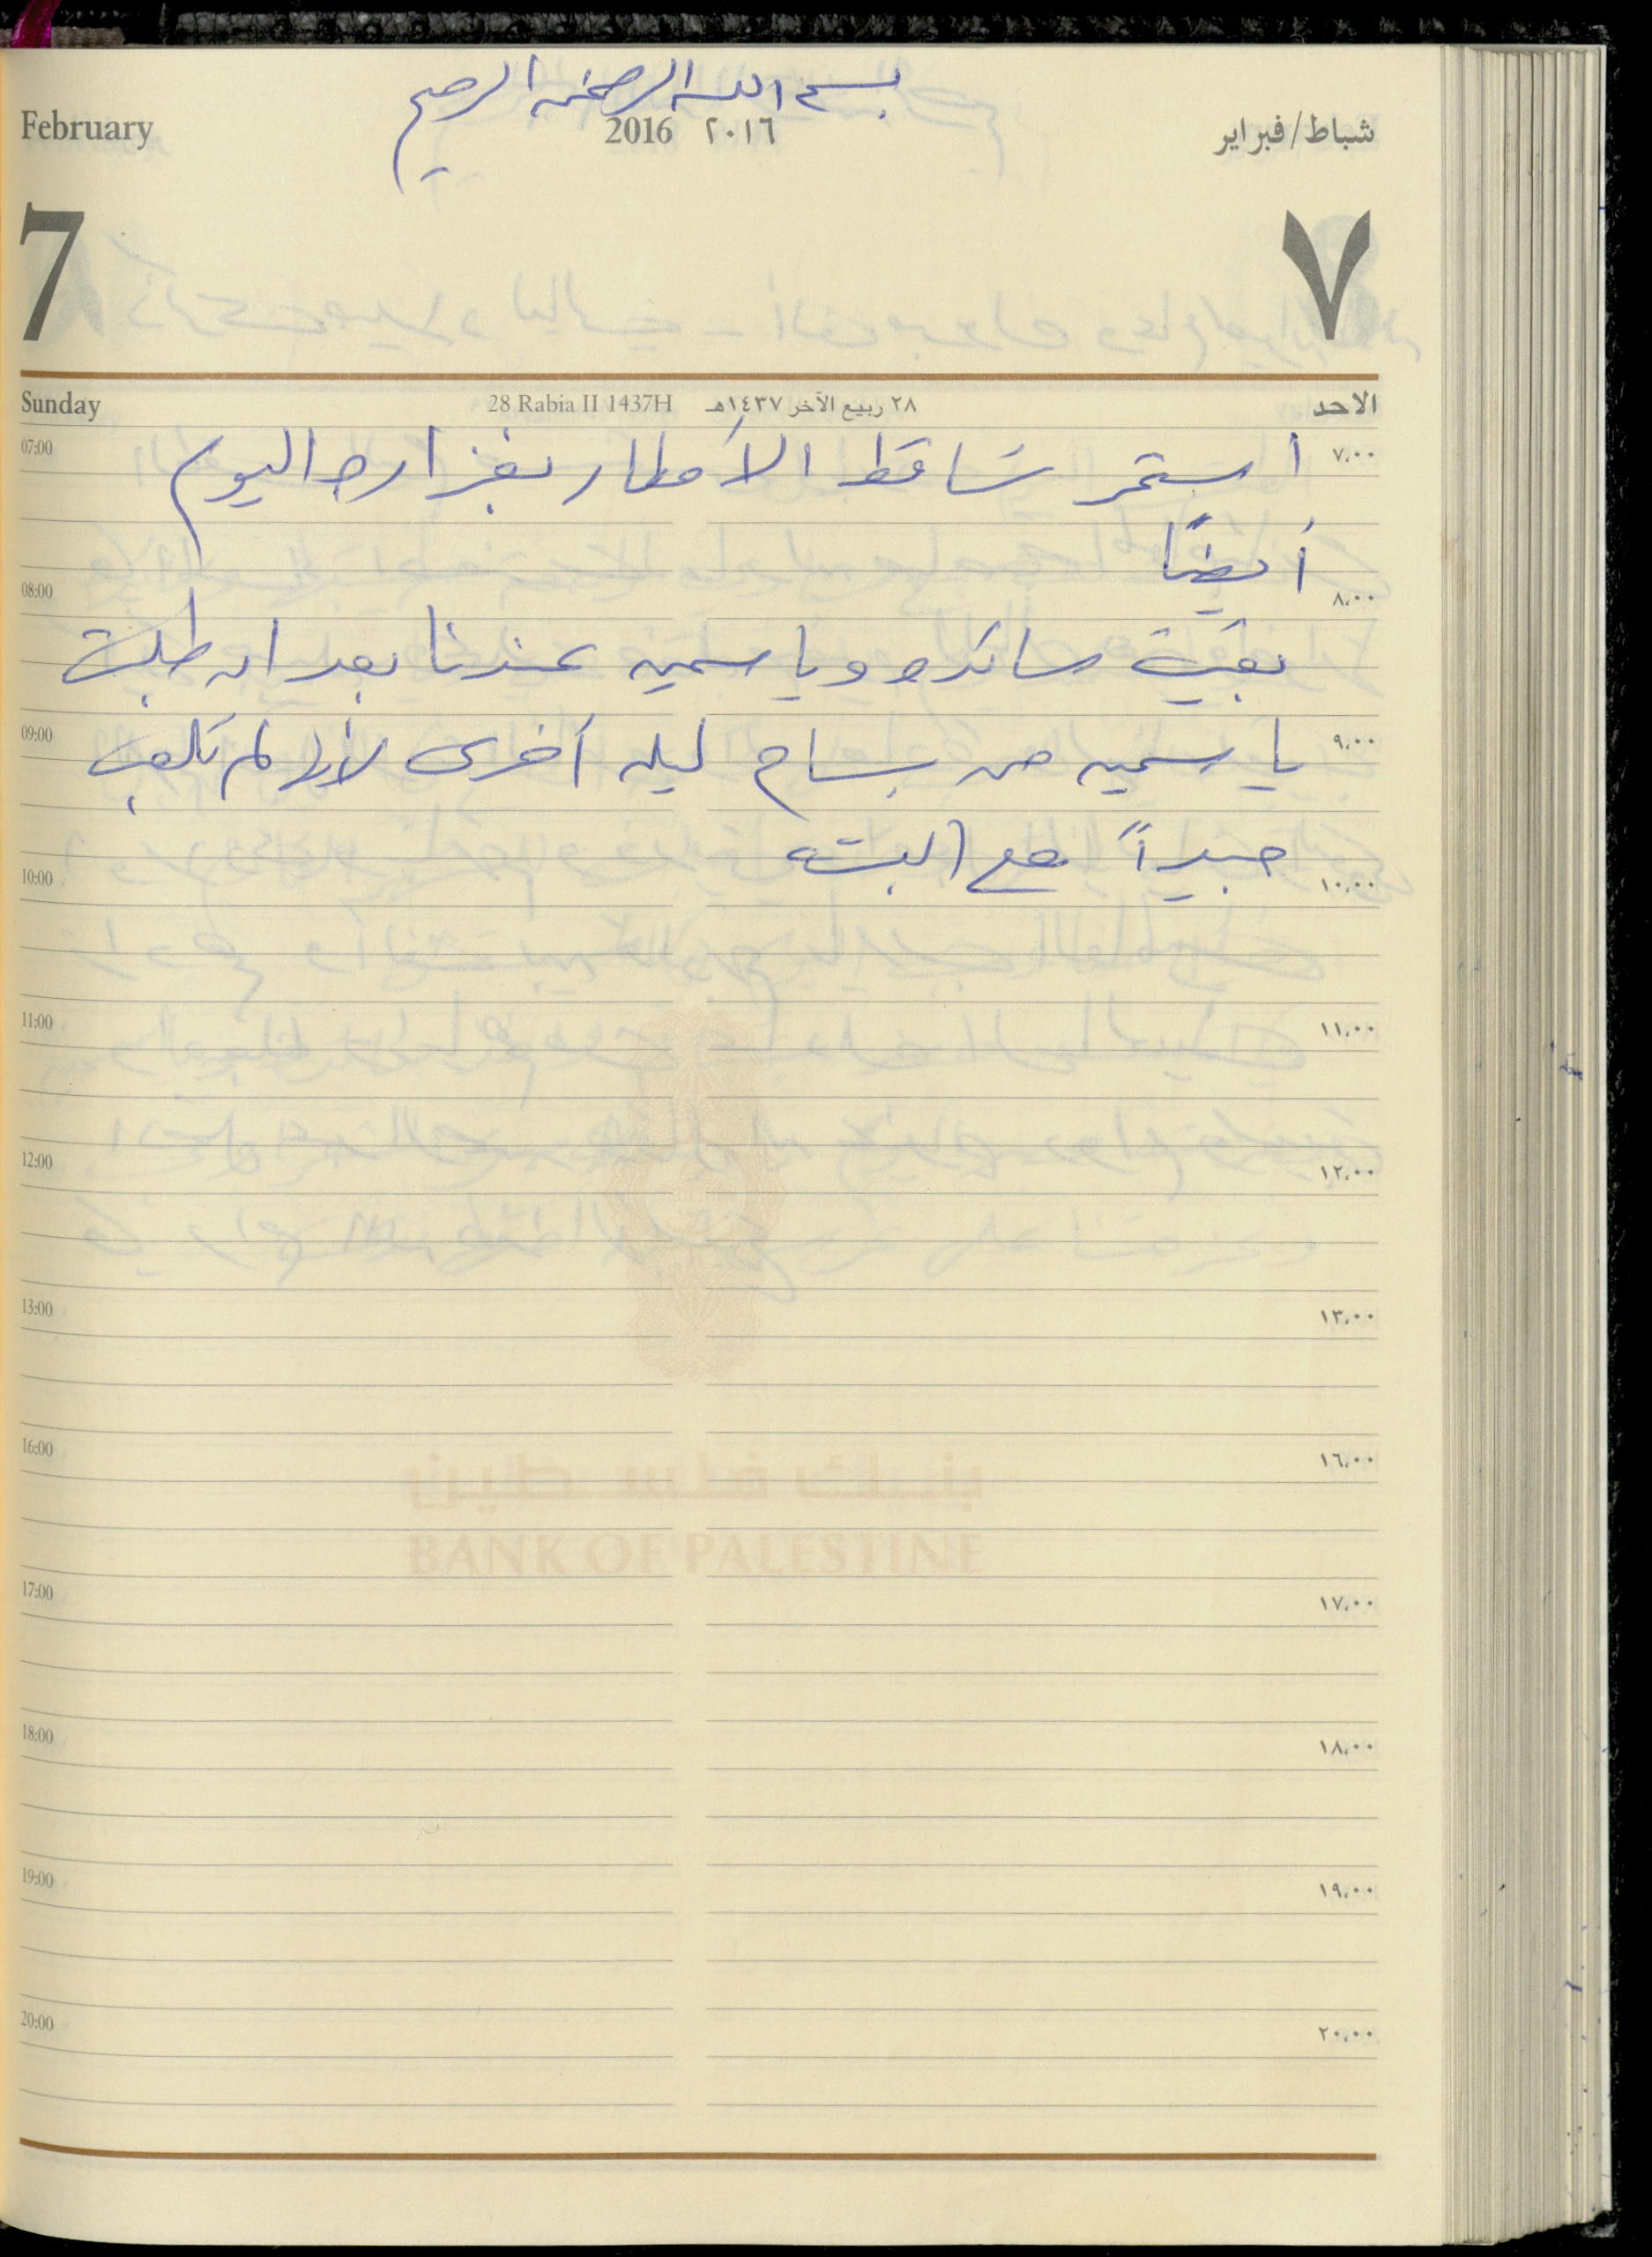 بسم الله الرحمن الرحيم
February 2016 ٢٠١٦ شباط/فبراير
7 ٧
Sunday 28 Rabia II 1437H ٢٨ ربيع الآخر ١٤٣٧هـ الاحد
07:00 استمر تساقط الأمطار بغزارة اليوم ٧،٠٠
أيضًا
08:00 ٨،٠٠
بقيت ساندرو وياسمين عندنا بعد ان طلبت
09:00 ياسمين من بسام ليله أخرى لأنها لم تلعب ٩،٠٠
جيداً مع البنت
10:00 ١٠،٠٠
11:00 ١١،٠٠
12:00 ١٢،٠٠
13:00 ١٣،٠٠
16:00 ١٦،٠٠
بنك فلسطين
BANK OF PALESTINE
17:00 ١٧،٠٠
18:00 ١٨،٠٠
19:00 ١٩،٠٠
20:00 ٢٠،٠٠